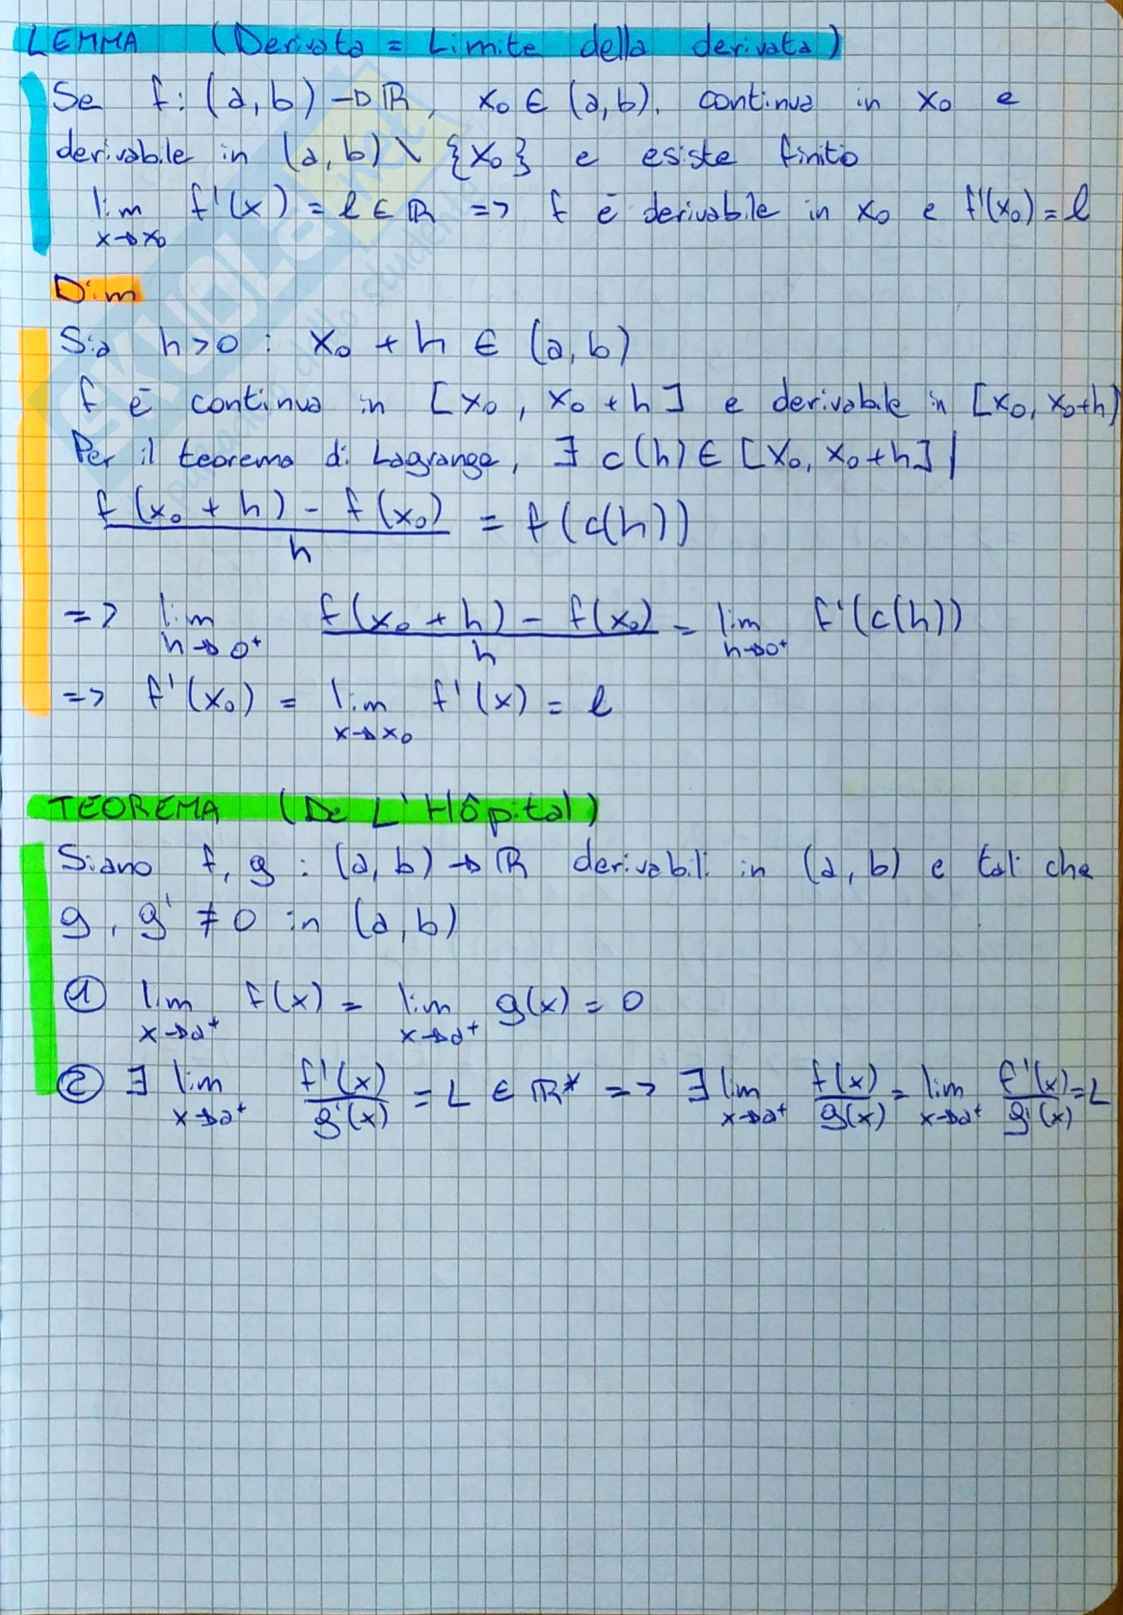 LEMMA (Derivata = Limite della derivata)
Se f: (a,b) → ℝ, x₀ ∈ (a,b), continua in x₀ e
derivabile in (a,b) \ {x₀} e esiste finito
lim x→x₀ f'(x) = l ∈ ℝ => f è derivabile in x₀ e f'(x₀) = l
Dim
Sia h>0 : x₀ + h ∈ (a,b)
f è continua in [x₀, x₀+h] e derivabile in [x₀, x₀+h)
Per il teorema di Lagrange, ∃ c(h) ∈ [x₀, x₀+h] |
(f(x₀+h) - f(x₀))/h = f(c(h))
=> lim h→0⁺ (f(x₀+h) - f(x₀))/h = lim h→0⁺ f'(c(h))
=> f'(x₀) = lim x→x₀ f'(x) = l
TEOREMA (De L'Hôpital)
Siano f, g : (a,b) → ℝ derivabili in (a,b) e tali che
g, g' ≠ 0 in (a,b)
① lim x→a⁺ f(x) = lim x→a⁺ g(x) = 0
② ∃ lim x→a⁺ f'(x)/g'(x) = L ∈ ℝ* => ∃ lim x→a⁺ f(x)/g(x) = lim x→a⁺ f'(x)/g'(x) = L
SKUOLA.net